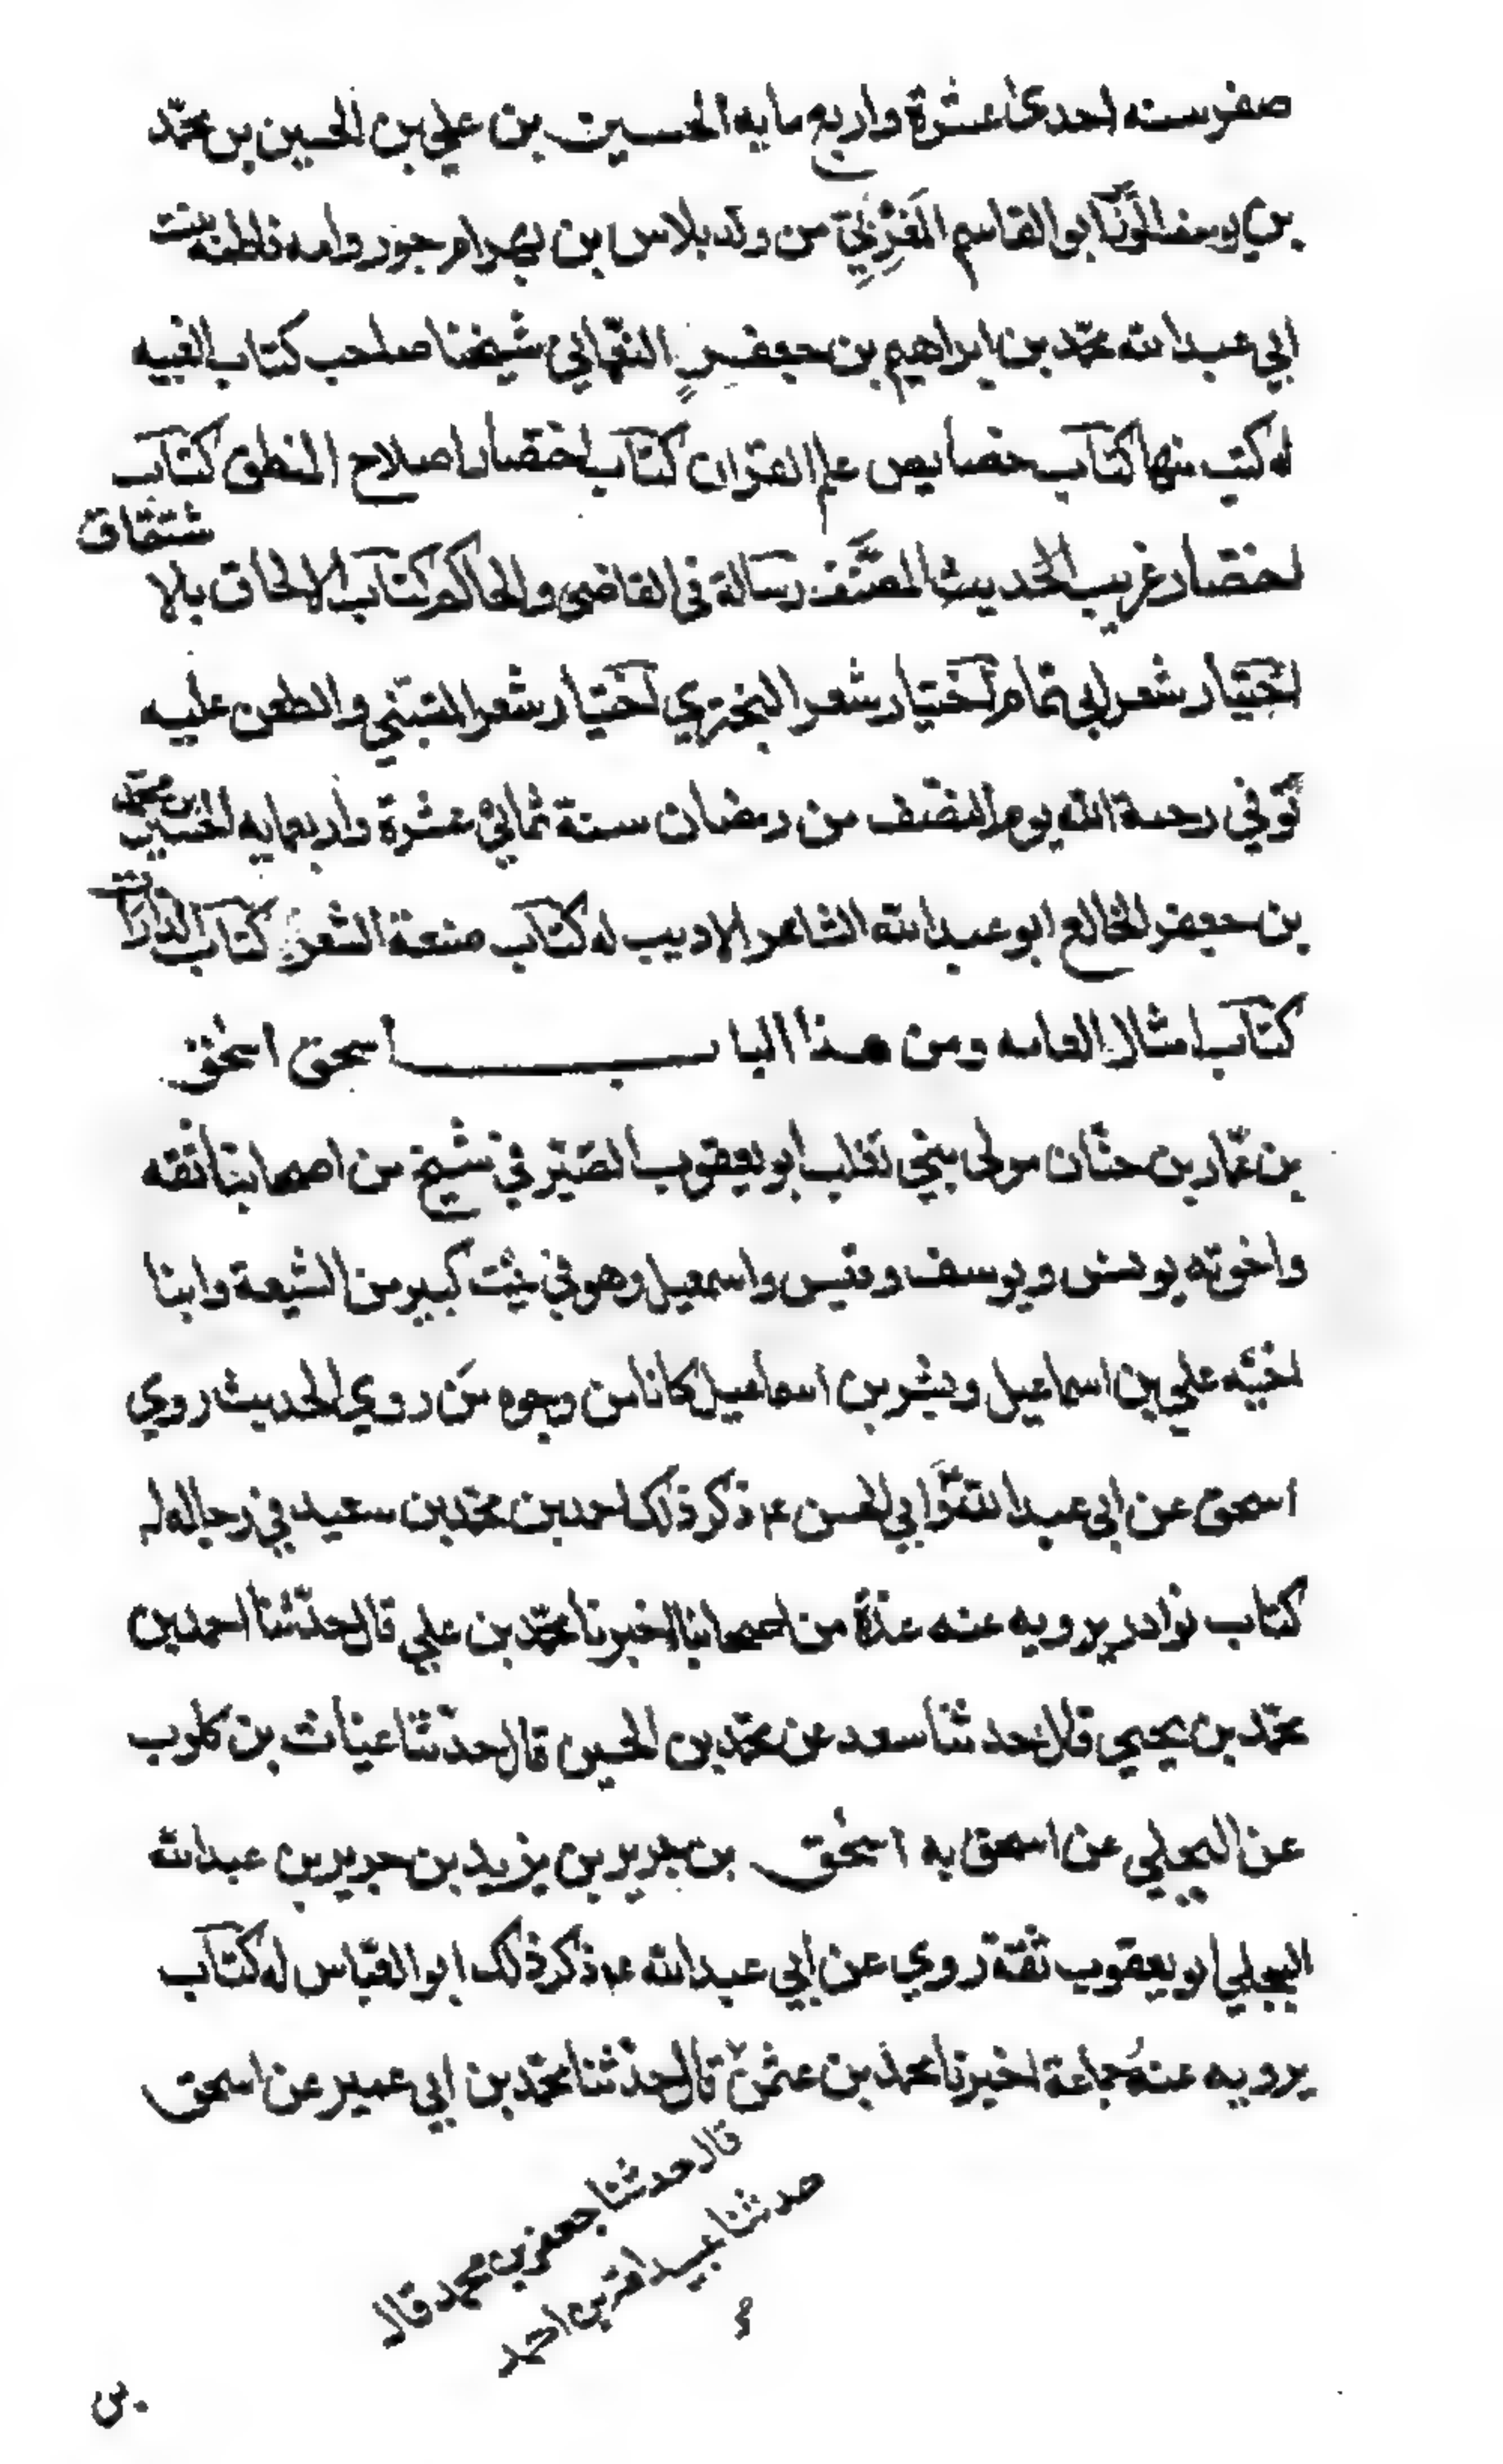 صفر سنه احدى عشرة واربع مايه الحسين بن علي بن الحسين بن محمّد
بن يوسف الوزير ابو القاسم المَغْرِبِيّ من ولد بلاس بن بهرام جور وامه فاطمه بنت
ابي عبد الله محمّد بن ابراهيم بن جعفرٍ النعّماني شيخنا صاحب كتاب الغيبه
له كتب منها كتاب خصايص علم القران كتاب اختصار اصلاح المنطق كتاب
اختصار غريب الحديث المصَنَّف رسالة في القاضي والحاكم كتاب الالحاق بالا
شتقاق
اختيار شعر ابي تمام اختيار شعر البحتري اختيار شعر المتنبّي والطعن عليه
توُفي رحمة الله يوم النصف من رمضان سنة ثماني عشرة واربعمايه الحسين بن محمّد
بن جعفر الخالع ابو عبد الله الشاعر الاديب له كتاب صنعة الشعر كتاب الدارات
كتاب امثال العامه ومن هذا الباب اسحق اسحٰق
بن عمّار بن حيّان مولى بني تغلب ابو يعقوب الصَيْرفي شيخ من اصحابنا ثقه
واخوته يونس ويوسف وقيس واسمعيل وهو في بيْت كبير من الشيعة وابنا
اخيْه علي بن اسماعيل وبشر بن اسماعيل كانا من وجوه مَن روي الحديث روي
اسحق عن ابي عبد الله وابي الحسن ع م ذكر ذلك احمد بن محمّد بن سعيد في رجاله له
كتاب نوادر يرويه عنه عدّة من اصحابنا اخبرنا محمّد بن علي قال حدّثنا احمد بن
محمّد بن يحيي قال حدثنا سعد عن محمّد بن الحسين قال حدثنا غياث بن كلوب
عن البجلي عن اسحق به اسحٰق بن جرير بن يزيد بن جرير بن عبد الله
البجلي ابو يعقوب ثقة روي عن ابي عبد الله ع م ذكر ذلك ابو العبّاس له كتاب
يرويه عنه جماعة اخبرنا محمد بن عثمٰن قال حدثنا محمّد بن ابي عمير عن اسحق
قال حدثنا جعفر بن محمد قال
حدثنا عبيد الله بن احمد
بن